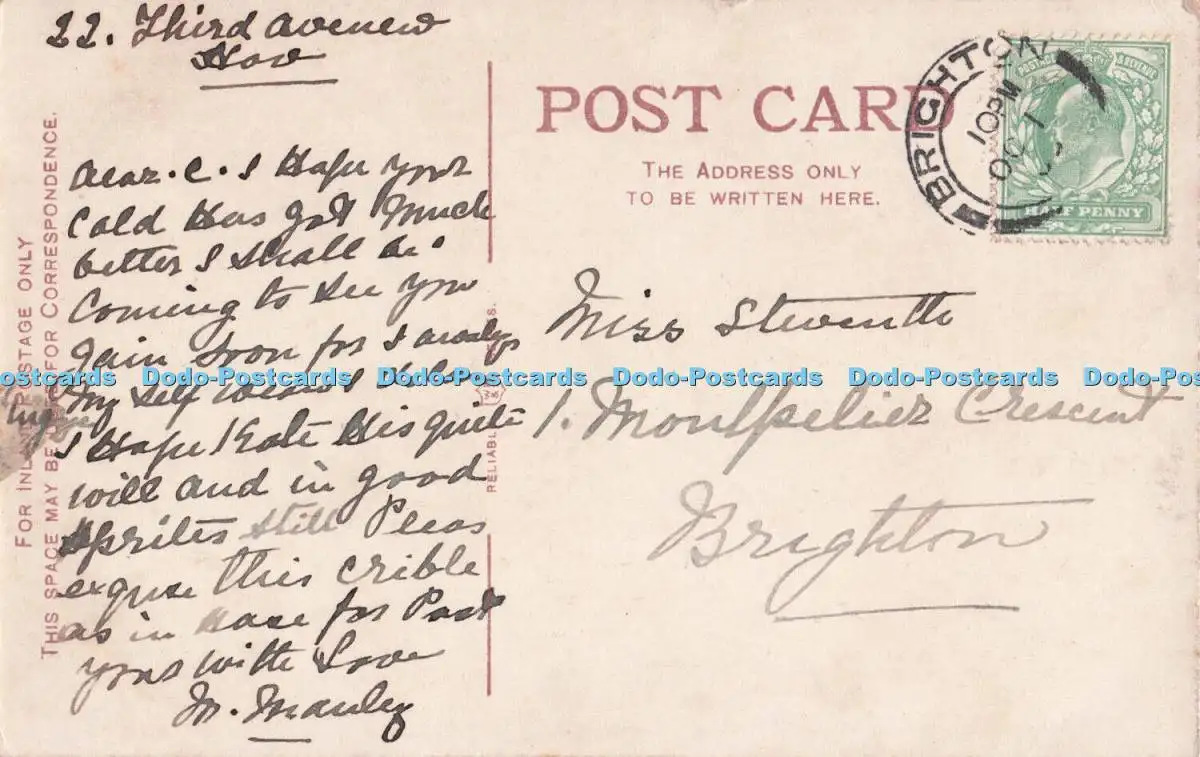 22. Third Avenew
Hov
Dear. C. I Hape your
Cold Has got Much
better I shall be
Coming to see you
gain soon for I
My self
I Hape Kate His quite
will and in good
sprites still Pleas
exquse this crible
as in Hase for Past
yours with Love
M. Manley
FOR INLAND POSTAGE ONLY
THIS SPACE MAY BE FOR CORRESPONDENCE.
RELIABLE
POST CARD
THE ADDRESS ONLY
TO BE WRITTEN HERE.
BRIGHTON
10 PM
OC 1
POSTAGE & REVENUE
HALF PENNY
Miss
1. Montpelier Crescent
Brighton
Dodo-Postcards Dodo-Postcards Dodo-Postcards Dodo-Postcards Dodo-Postcards